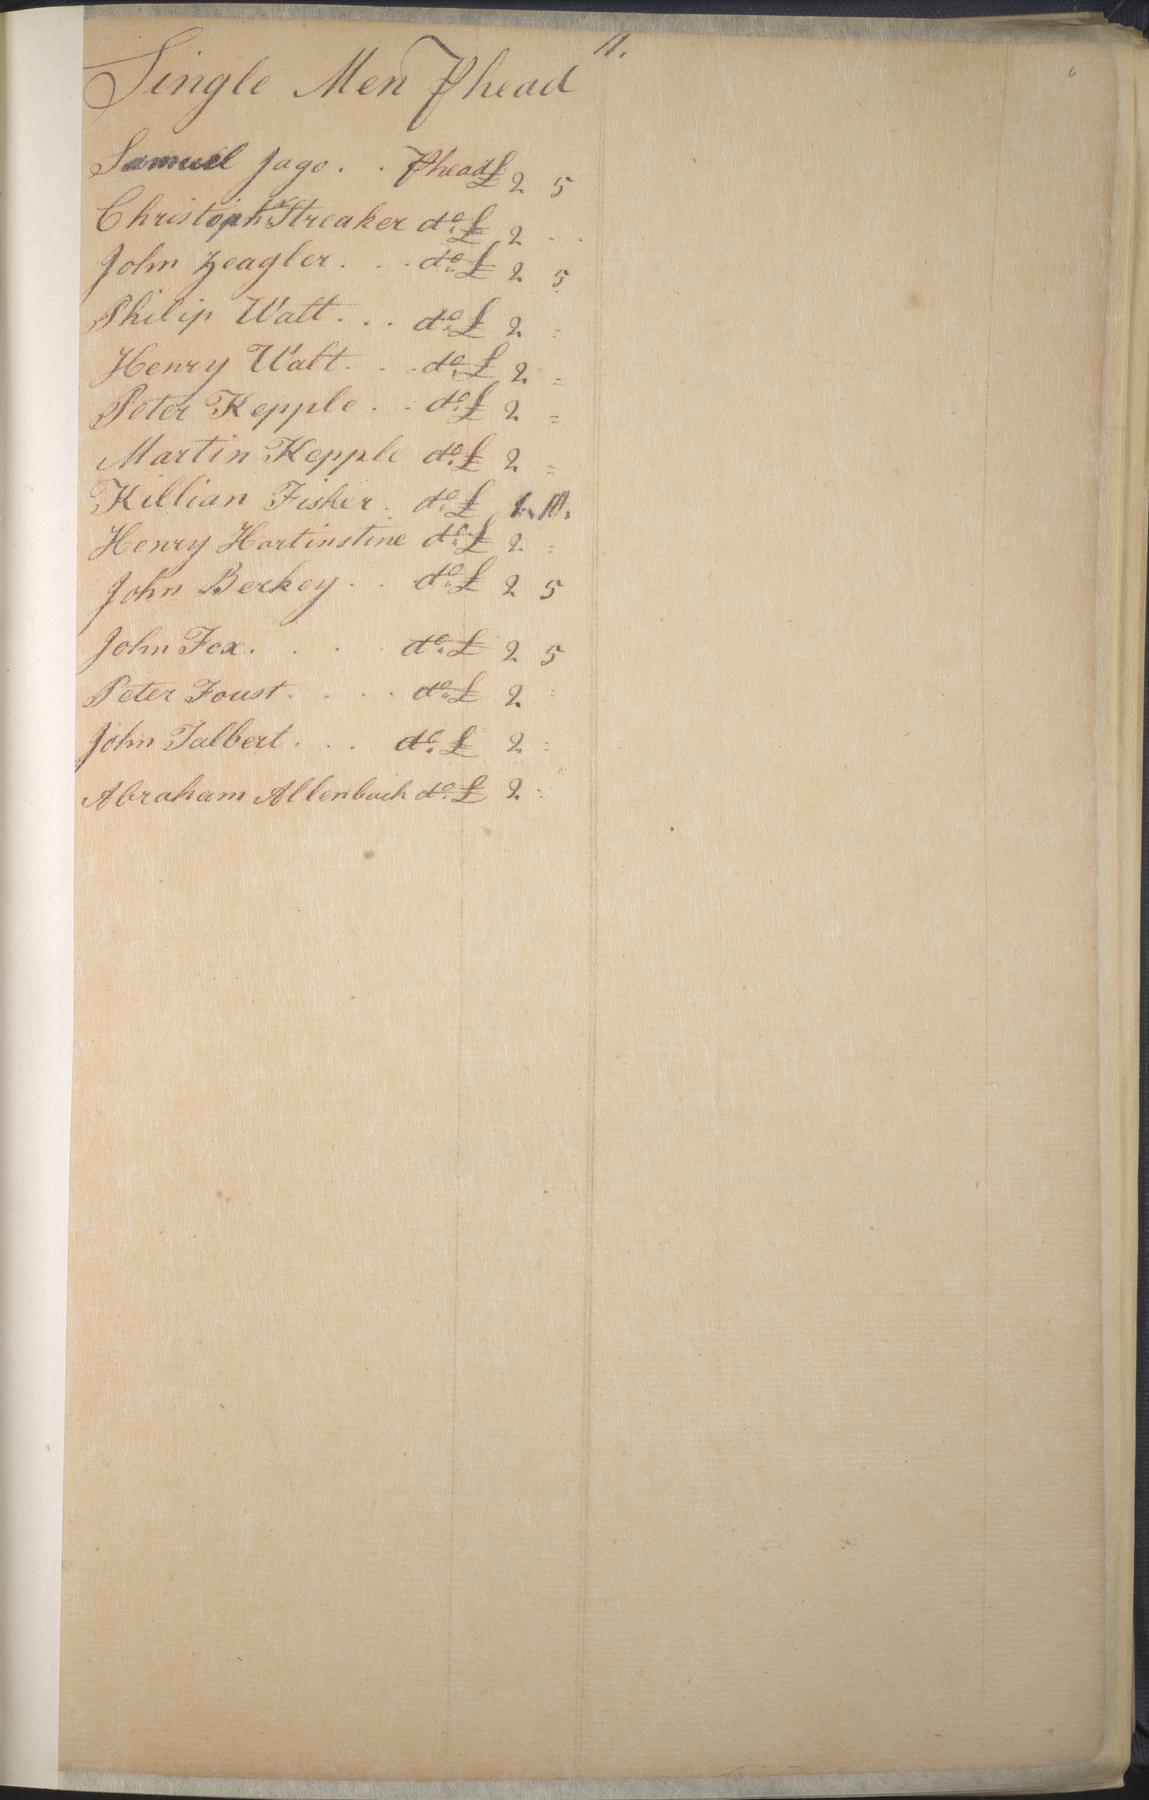 11.
6
Single Men ⅌ head
Samuel Jago . . ⅌ head £ 2 5
Christophr Streaker do £ 2 . .
John Zeagler . . . do £ 2 5
Philip Watt . . . do £ 2 =
Henry Watt . . . do £ 2 =
Peter Kepple . . do £ 2 =
Martin Kepple do £ 2 =
Killian Fisher . do £ 1. 10.
Henry Hartinstine do £ 2 =
John Berkey . . do £ 2 5
John Fox . . . . do £ 2 5
Peter Foust . . . . do £ 2 :
John Talbert . . . do £ 2 :
Abraham Allenbach do £ 2 :